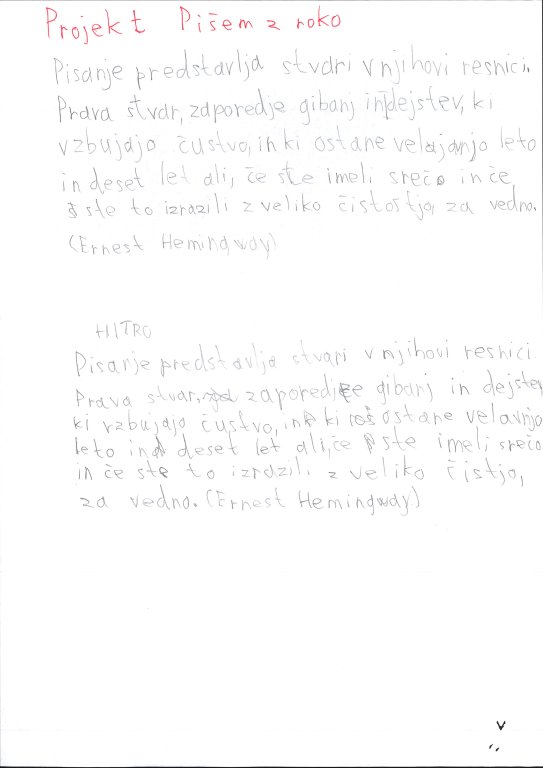 Projekt Pišem z roko
Pisanje predstavlja stvari v njihovi resnici.
Prava stvar, zaporedje gibanj in dejstev, ki
vzbujajo čustvo, in ki ostane velajanjo leto
in deset let ali, če ste imeli srečo in če
ste to izrazili z veliko čistostjo, za vedno.
(Ernest Hemingway)
HITRO
Pisanje predstavlja stvari v njihovi resnici
Prava stvar, zaporedje gibanj in dejstev
ki vzbujajo čustvo, in ki ostane velavnjo
leto in deset let ali, če ste imeli srečo
in če ste to izrazili z veliko čistjo,
za vedno. (Ernest Hemingway)